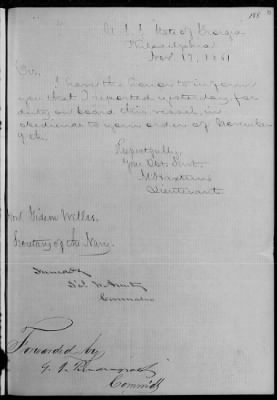 U. S. S. State of Georgia
Philadelphia
Nov. 17, 1861
Sir,
I have the honor to inform
you that I reported yesterday, for
duty on board this vessel, in
obedience to your order of November
9th.
Respectfully,
Your Obt. Servt.
Lieutenant
Hon. Gideon Welles,
Secretary of the Navy.
Commander
Forwarded by